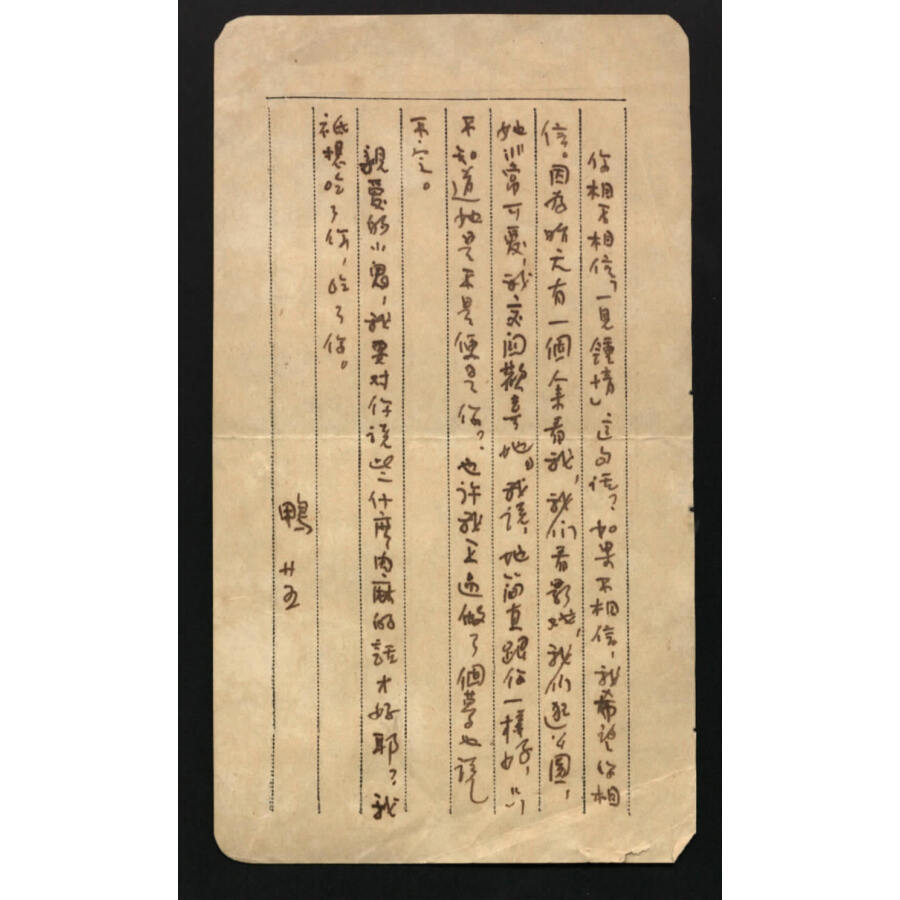 你相不相信「一見鍾情」這句話？如果不相信，我希望你相
信。因為昨天有一個人來看我，我们看影戏，我们逛公園，
她非常可愛，我交関歡喜她。我說，她简直跟你一樣好，只
不知道她是不是便是你？也许我不过做了個夢也說
不定。
親愛的小鬼，我要对你說些什麼肉麻的話才好耶？我
祗想吃了你，吃了你。
鴨 廿五